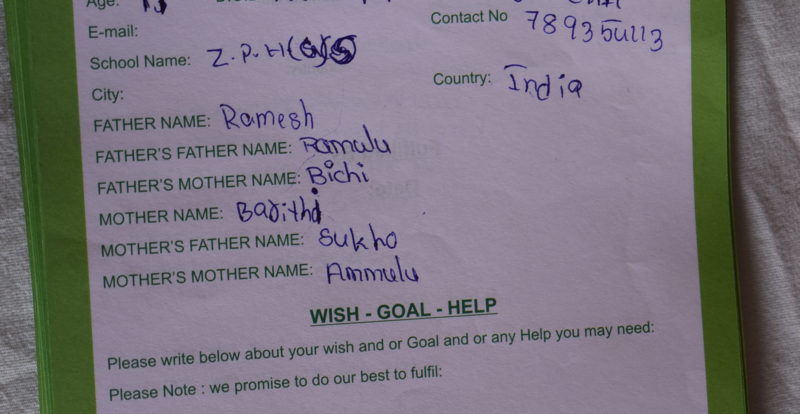 Age:
E-mail:
Contact No
School Name: Z.P.H
Country: India
City:
FATHER NAME: Ramesh
FATHER'S FATHER NAME: Ramulu
FATHER'S MOTHER NAME: Bichi
MOTHER NAME:
MOTHER'S FATHER NAME: Sukho
MOTHER'S MOTHER NAME: Ammulu
WISH - GOAL - HELP
Please write below about your wish and or Goal and or any Help you may need:
Please Note : we promise to do our best to fulfil: